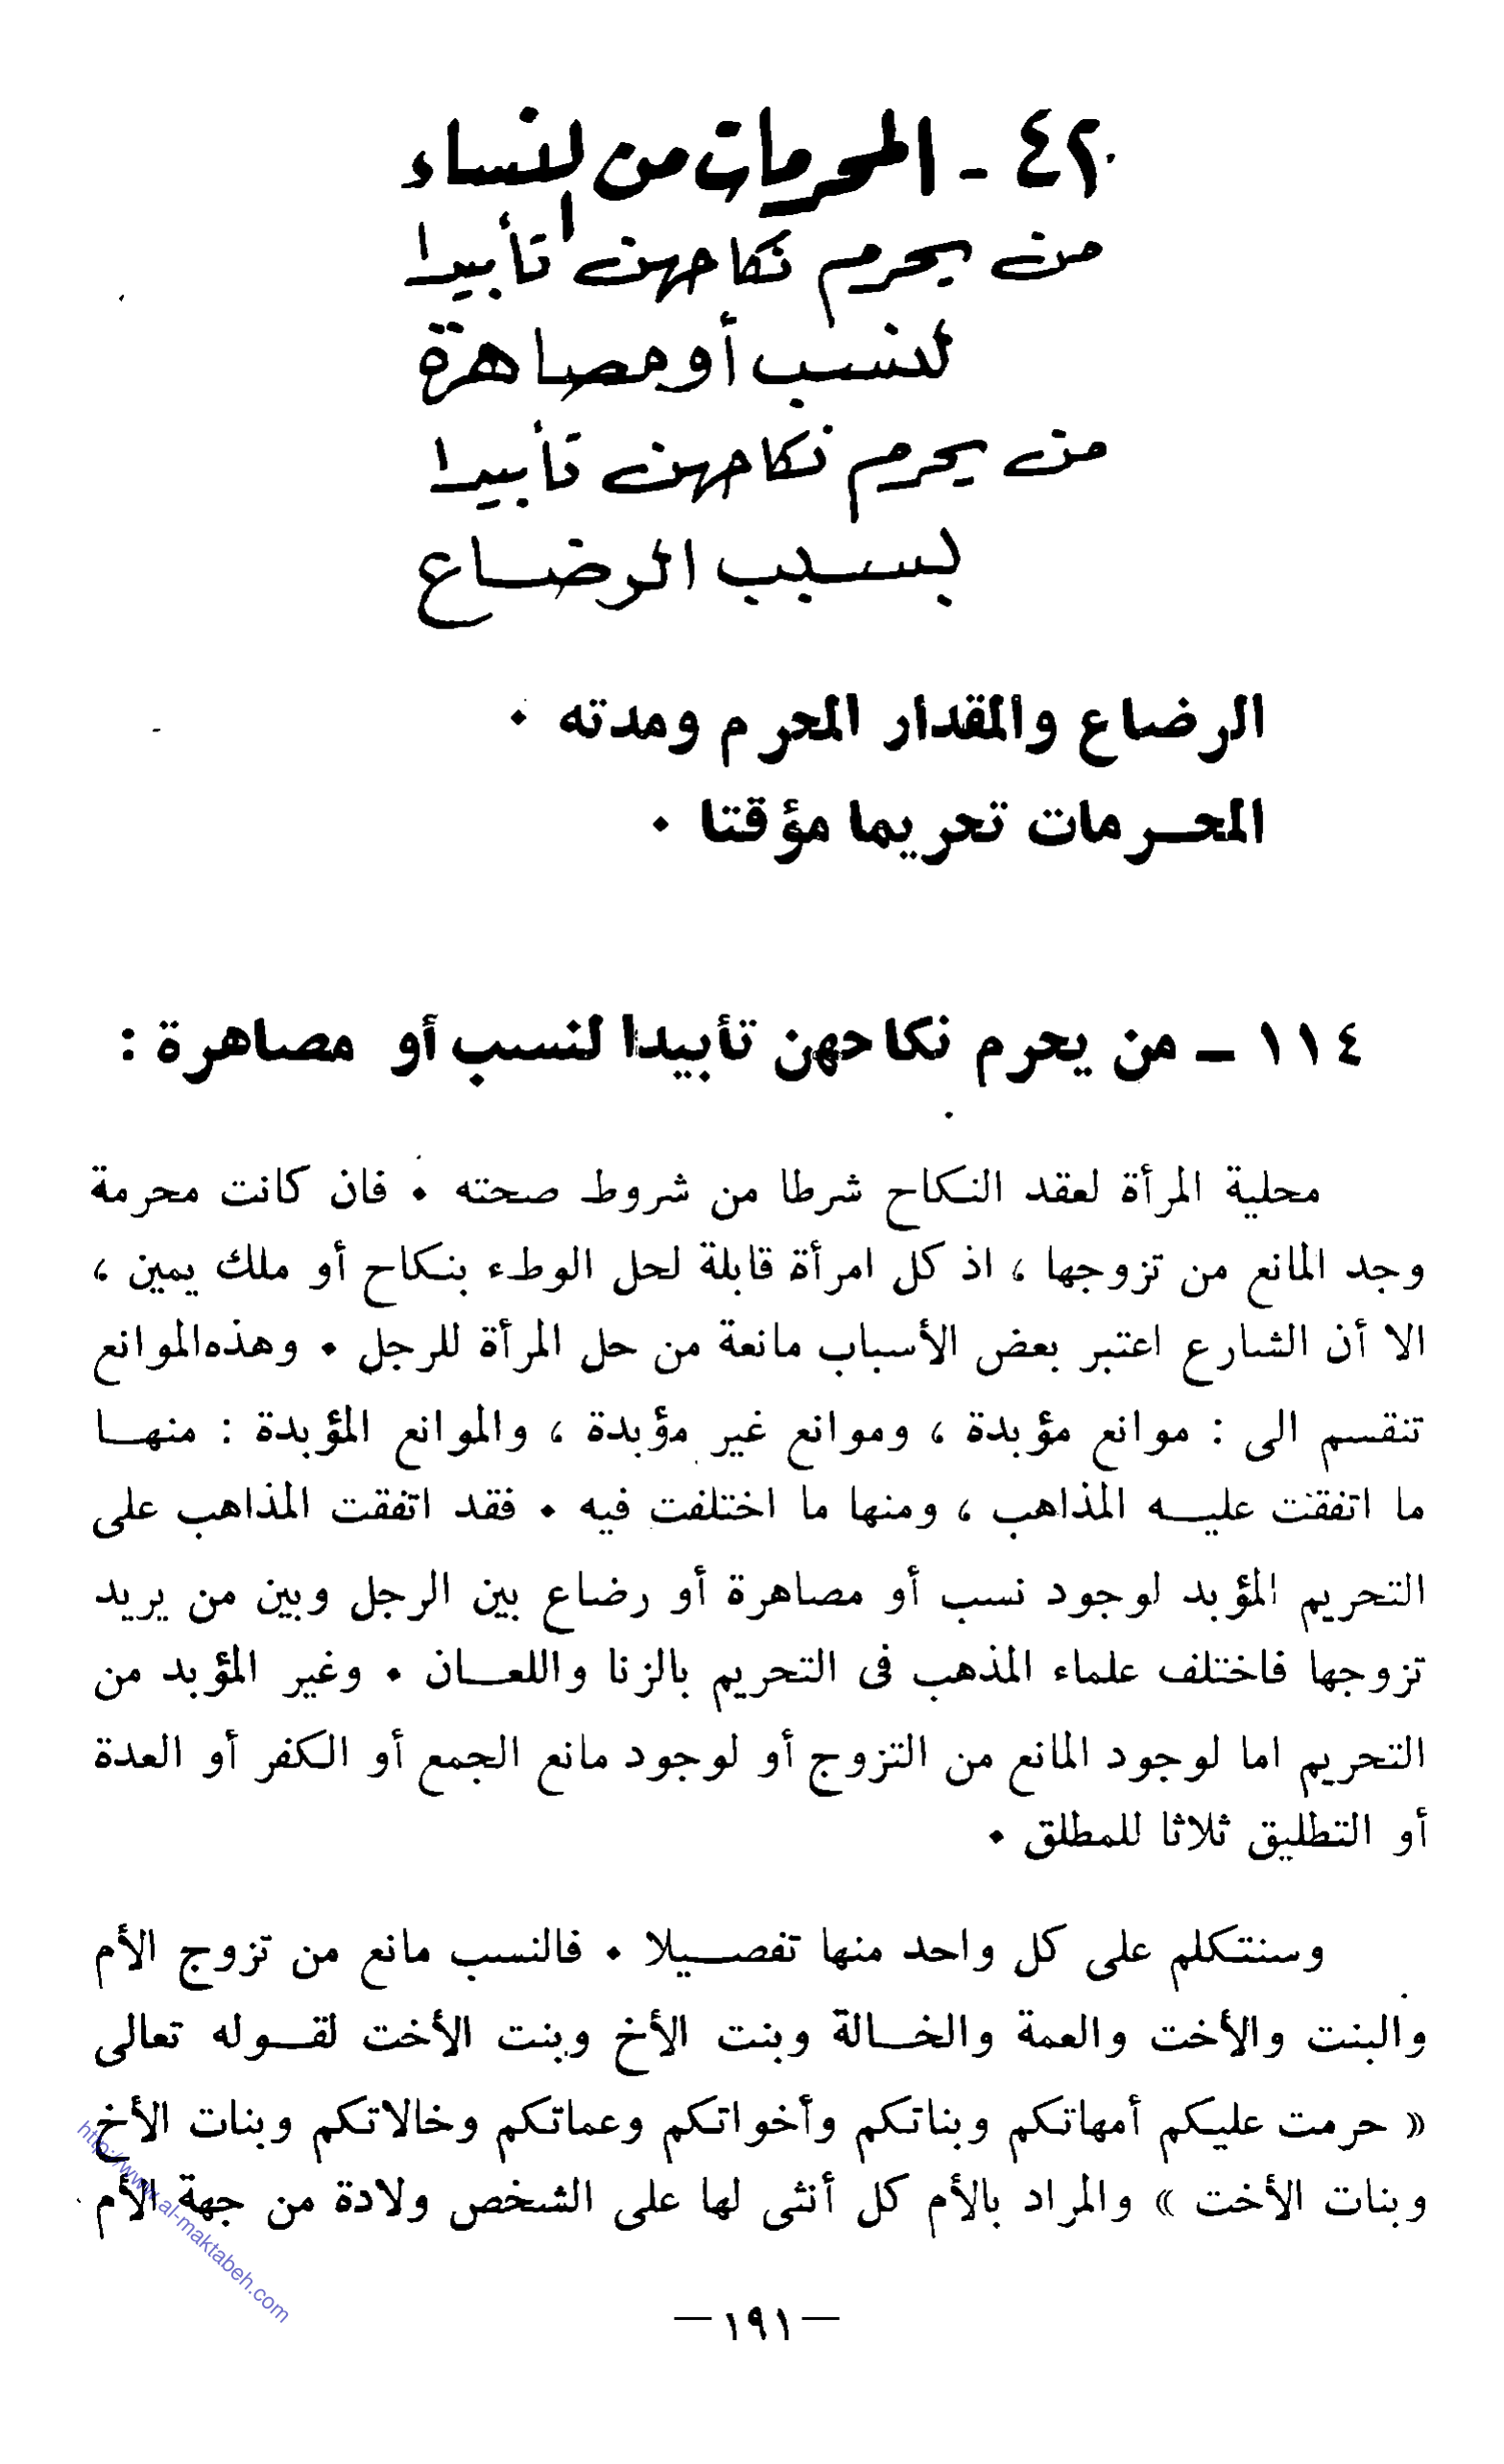 ٤٢ - المحرمات من النساء
من يحرم نكاحهن تأبيدا
لنسب أو مصاهرة
من يحرم نكاحهن تأبيدا
بسبب الرضاع
الرضاع والمقدار المحرم ومدته ٠
المحرمات تحريما مؤقتا ٠
١١٤ – من يحرم نكاحهن تأبيدا لنسب أو مصاهرة :
محلية المرأة لعقد النكاح شرطا من شروط صحته ٠ فان كانت محرمة
وجد المانع من تزوجها ، اذ كل امرأة قابلة لحل الوطء بنكاح أو ملك يمين ،
الا أن الشارع اعتبر بعض الأسباب مانعة من حل المرأة للرجل ٠ وهذه الموانع
تنقسم الى : موانع مؤبدة ، وموانع غير مؤبدة ، والموانع المؤبدة : منها
ما اتفقت عليه المذاهب ، ومنها ما اختلفت فيه ٠ فقد اتفقت المذاهب على
التحريم المؤبد لوجود نسب أو مصاهرة أو رضاع بين الرجل وبين من يريد
تزوجها فاختلف علماء المذهب فى التحريم بالزنا واللعان ٠ وغير المؤبد من
التحريم اما لوجود المانع من التزوج أو لوجود مانع الجمع أو الكفر أو العدة
أو التطليق ثلاثا للمطلق ٠
وسنتكلم على كل واحد منها تفصيلا ٠ فالنسب مانع من تزوج الأم
والبنت والأخت والعمة والخالة وبنت الأخ وبنت الأخت لقوله تعالى
« حرمت عليكم أمهاتكم وبناتكم وأخواتكم وعماتكم وخالاتكم وبنات الأخ
وبنات الأخت » والمراد بالأم كل أنثى لها على الشخص ولادة من جهة الأم
http://www.al-maktabeh.com
— ١٩١ —